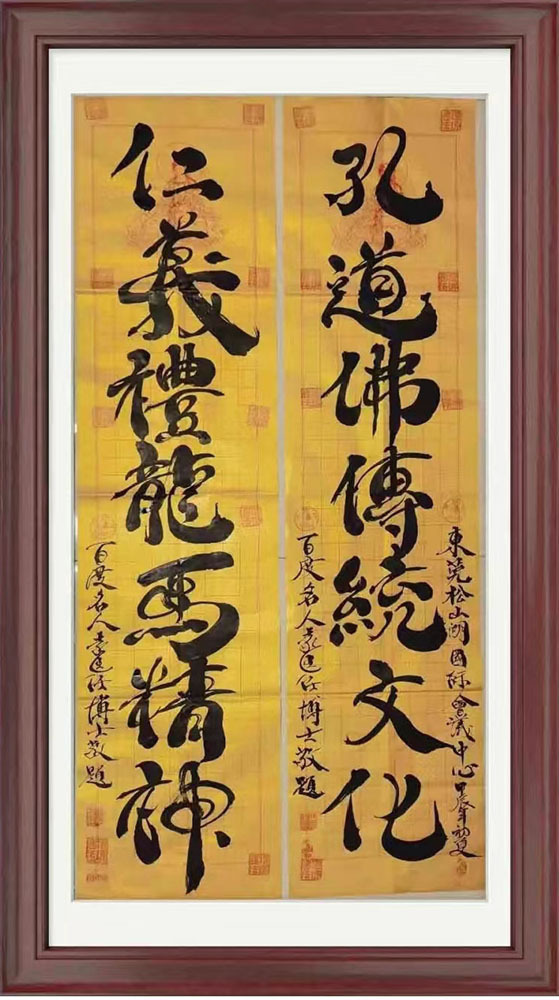 東莞松山湖國际會議中心甲辰年初夏
孔道佛傳統文化
百度名人博士敬題
仁義禮龍馬精神
百度名人博士敬題